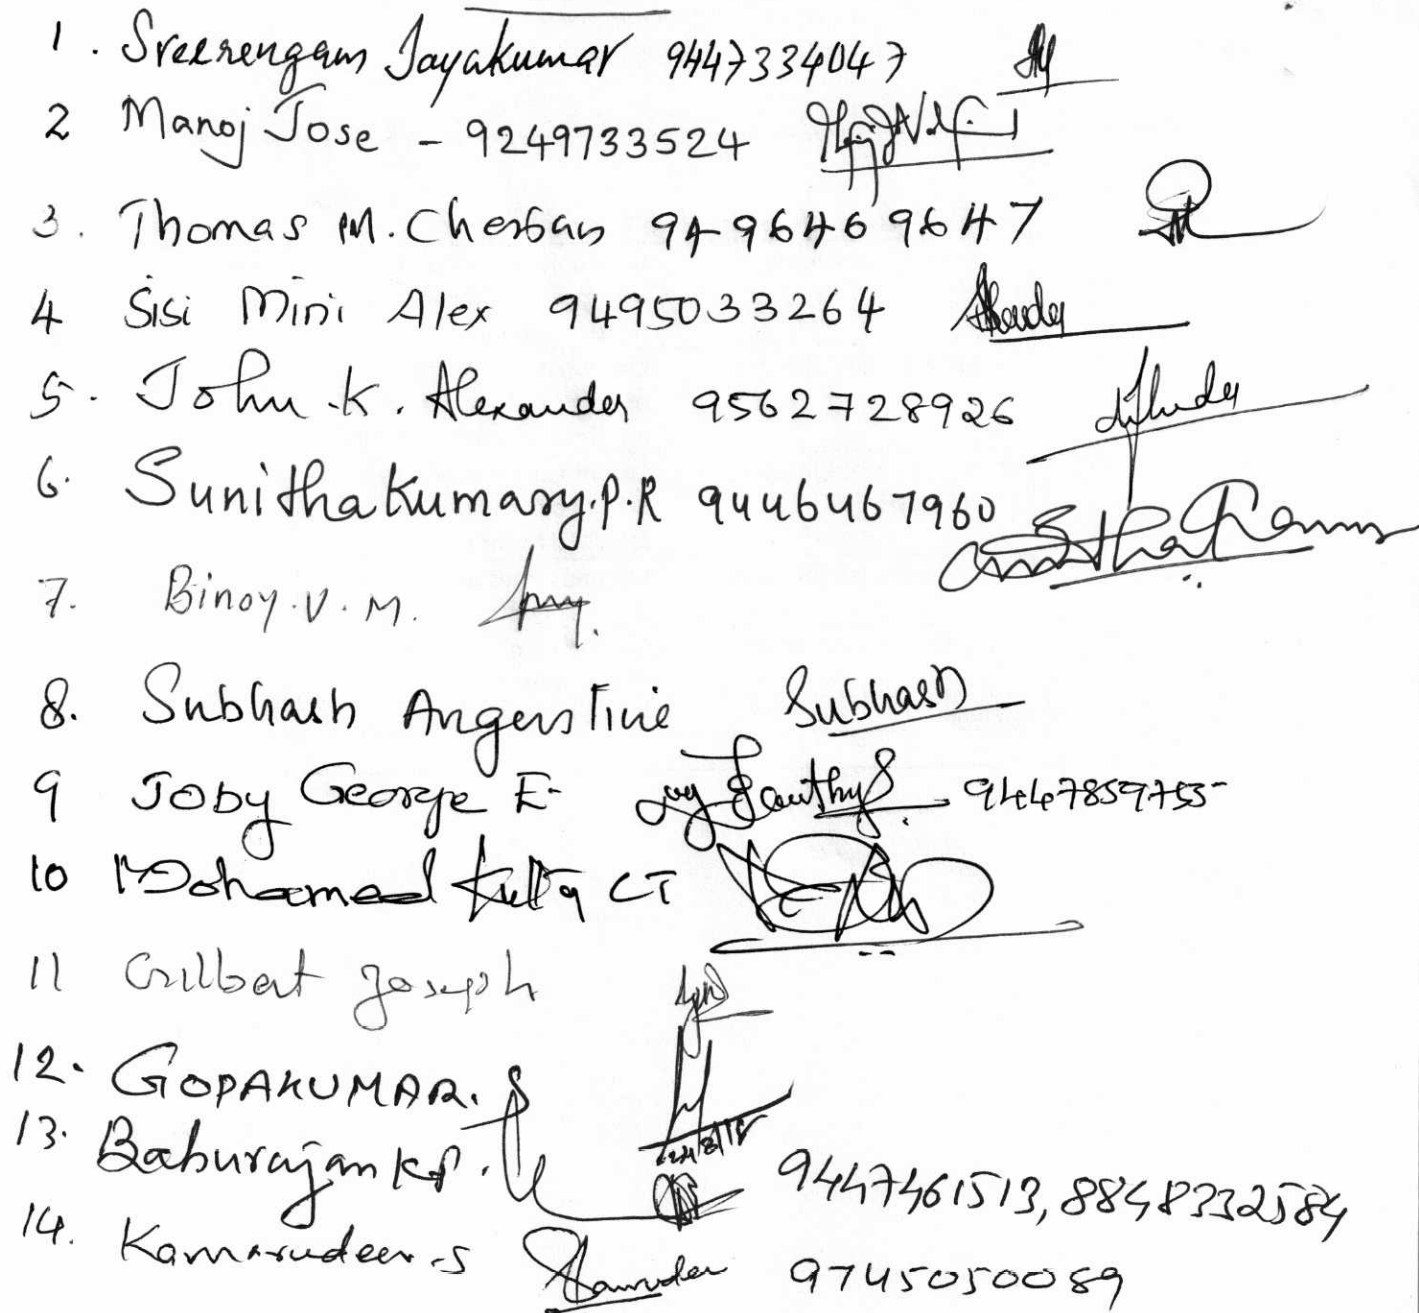 1. Sreerengam Jayakumar 9447334047
2 Manoj Jose - 9249733524
3. Thomas M. Cherian 9496469647
4 Sisi Mini Alex 9495033264
5. John.K. Alexander 9562728926
6. Sunithakumary.P.R 9446467960
7. Binoy.V.M.
8. Subhash Angerstine Subhash
9 Joby George E- 9447859755
10 Mohamed Kutty CT
11 Gilbert Joseph
12. GOPAKUMAR.
13. Baburajan KP. 9447461513, 8848332584
14. Kamarudeen.S 9745050089